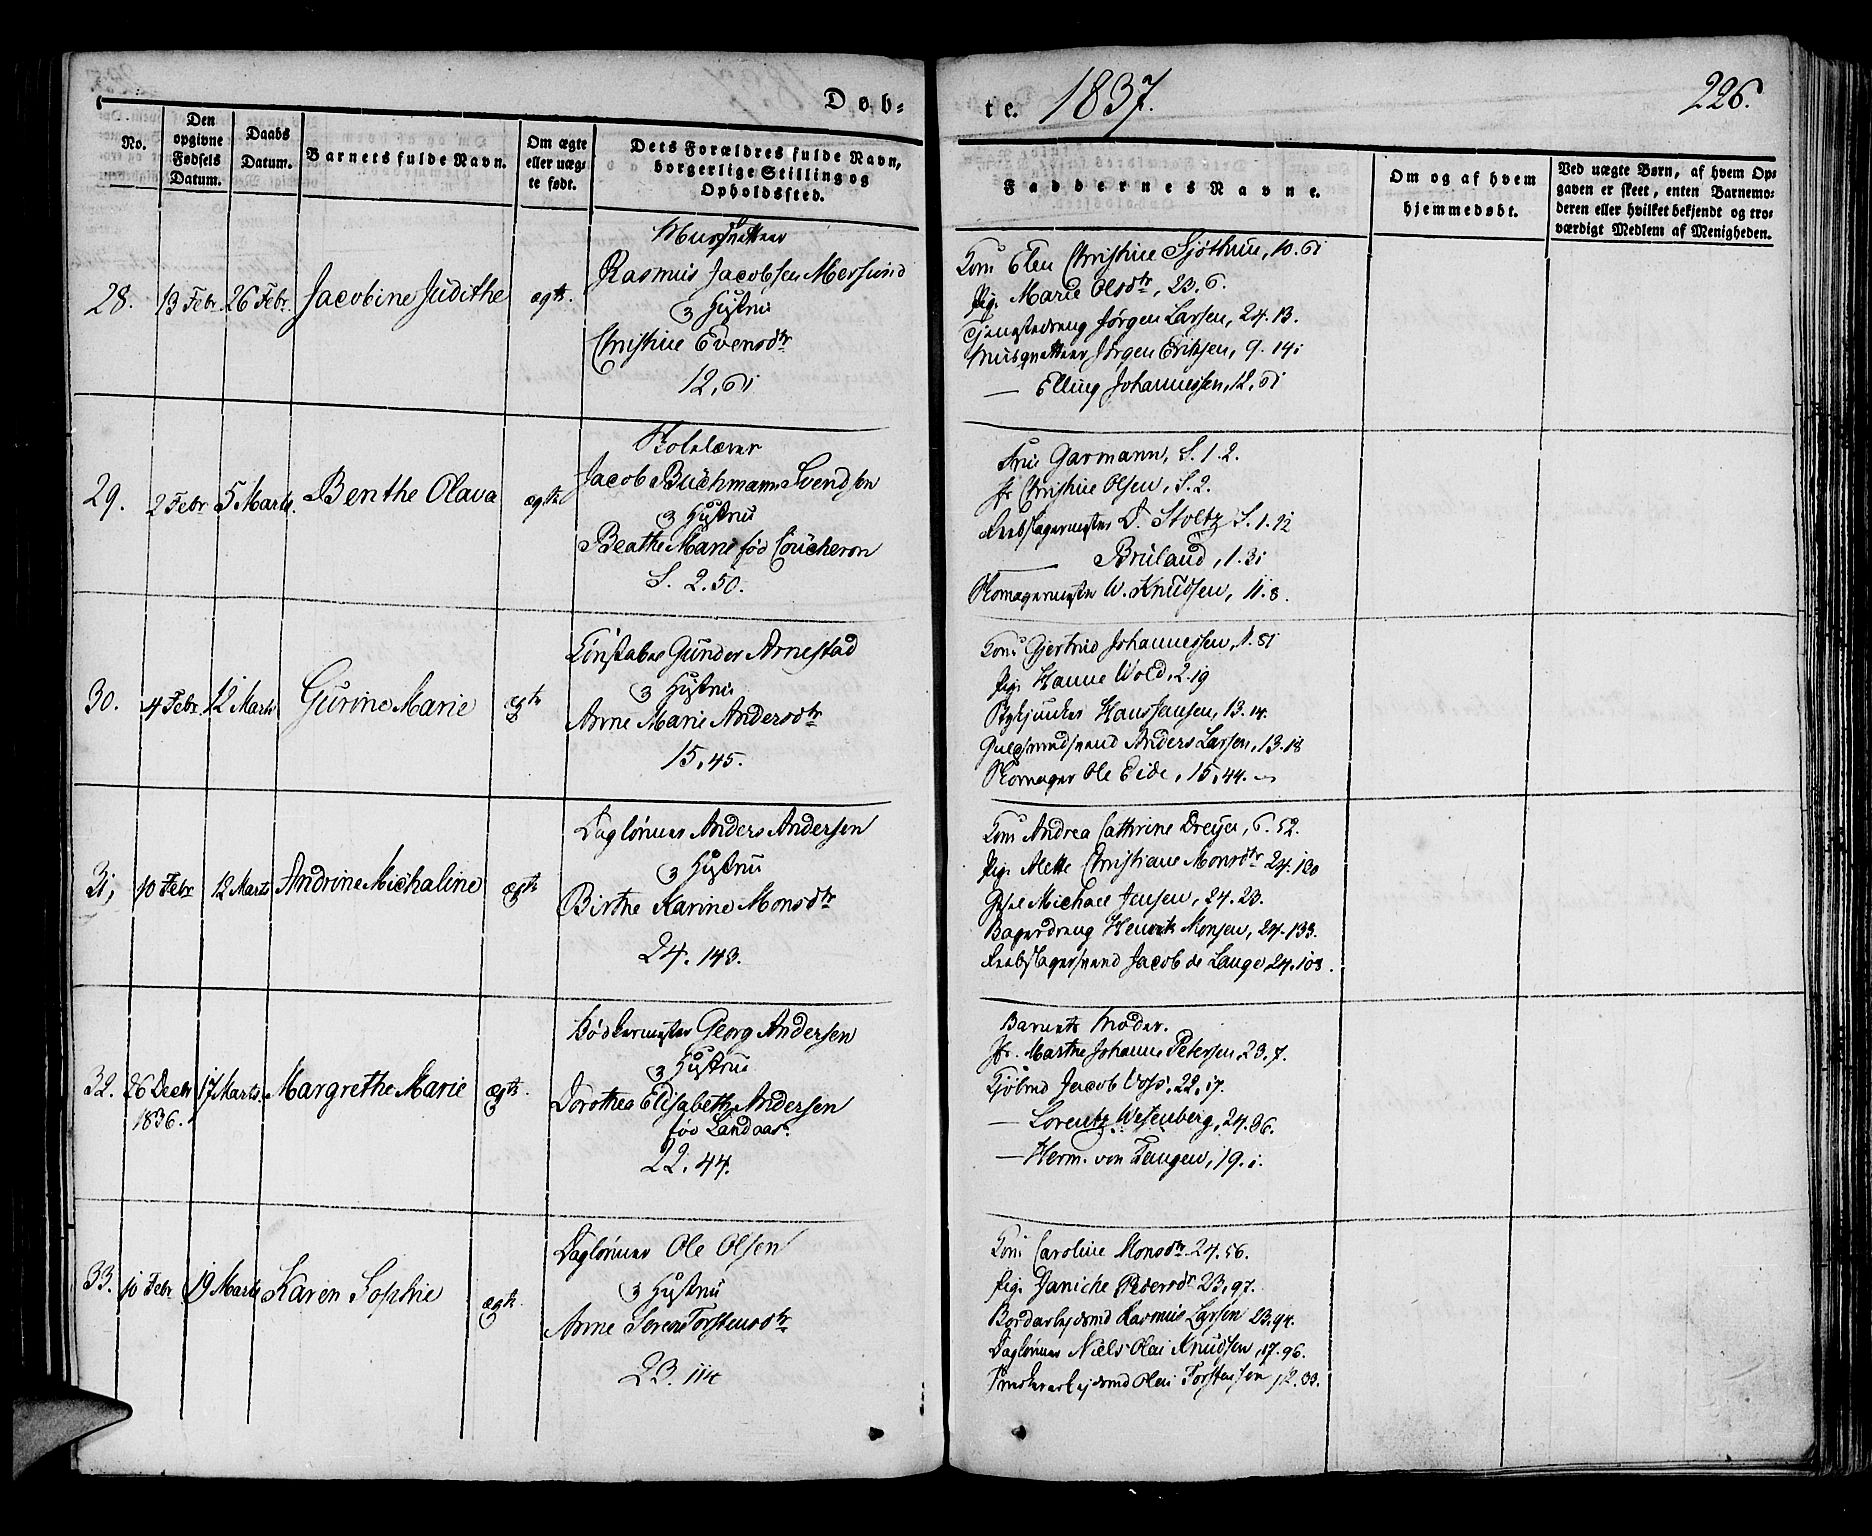 Døb-
te. 1837.
226.
No.
Den opgivne Fødsels Datum.
Daabs Datum.
Barnets fulde Navn.
Om ægte eller uæg- te født.
Dets Forældres fulde Navn, borgerlige Stilling og Opholdssted.
Faddernes Navne.
Om og af hvem hjemmedøbt.
Ved uægte Børn, af hvem Op- gaven er skeet, enten Barnemo- deren eller hvilket bekjendt og tro- værdigt Medlem af Menigheden.
28.
13 Febr
26 Febr
Jacobine Judithe
ægte.
Musqvetteer
Rasmus Jacobsen Mossund
& Hustru
Christine Evensdtr
12,61
Kone Elen Christine Sjøthun, 10.61
Pige Marie Olsdtr, 23.6.
Tjenestedreng Jørgen Larsen, 24.13.
Musqvetteer Jørgen Eriksen, 9.141
— Elling Johannessen, 12.61
29.
2 Febr
5 Marts.
Benthe Olava
ægte
Skolelærer
Jacob Buchmann Svendsen
& Hustru
Beathe Marie fød Coucheron
S. 2.50.
Frue Garmann, S.1.2.
Jfr Christine Olsen, S.2.
Reebslagermester D. Stoltz S.1.12
— Bruland, 1.31
Skomagermester W. Knudsen, 11.8.
30.
4 Febr.
12 Marts
Gurine Marie
ægte
Constabel Gunder Arnestad
& Hustru
Anne Marie Andersdtr
15,45.
Kone Gjertrud Johannessen, 1.81
Pige Hanne Wold, 2.19
Stykjunker Hans Hansen, 13.14.
Anders Larsen, 13.18
Skomager Ole Eide, 15,44.
31,
10 Febr
12 Marts
Andrine Michaline
ægte
Daglønner Anders Andersen
& Hustru
Birthe Karine Monsdtr
24.143.
Kone Andrea Cathrine Dreyer, 6.52.
Pige Mette Christiane Monsdtr 24.130
Michael Jensen, 24.23.
Bagerdreng Henrik Monsen, 24.133.
Reebslagersvend Jacob de Lange 24.103.
32.
26 Decbr 1836.
17 Marts.
Margrethe Marie
ægte.
Bødkermester Georg Andersen
& Hustrue
Dorothea Elisabeth Andersen
fød Landaas.
22.44.
Barnets Moder.
Jfr. Marthe Johanne Petersen, 23.7.
Kjøbmd Jacob Voss, 22.17.
— Lorentz Wesenberg, 24.36.
— Herm. von Tangen, 19.1.
33.
10 Febr
19 Marts
Karen Sophie
ægte.
Daglønner Ole Olsen
& Hustru
Anne Serene Torstensdtr
23.114
Kone Caroline Monsdtr 24.56.
Pige Daniche Pedersdtr 23,97.
Bordarbejdsmd Rasmus Larsen 23.94.
Daglønner Niels Olai Knudsen, 17.96.
Olai Torstensen 12.33.